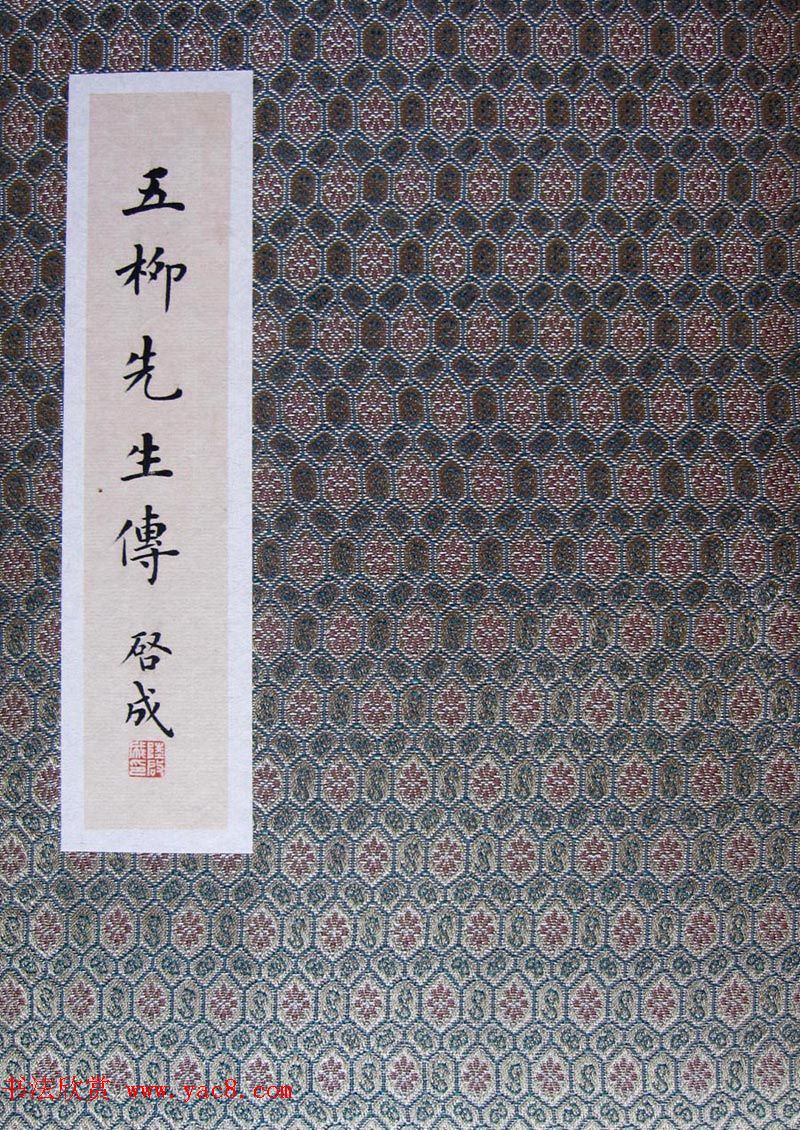 五柳先生傳
啓成
书法欣赏 www.yac8.com